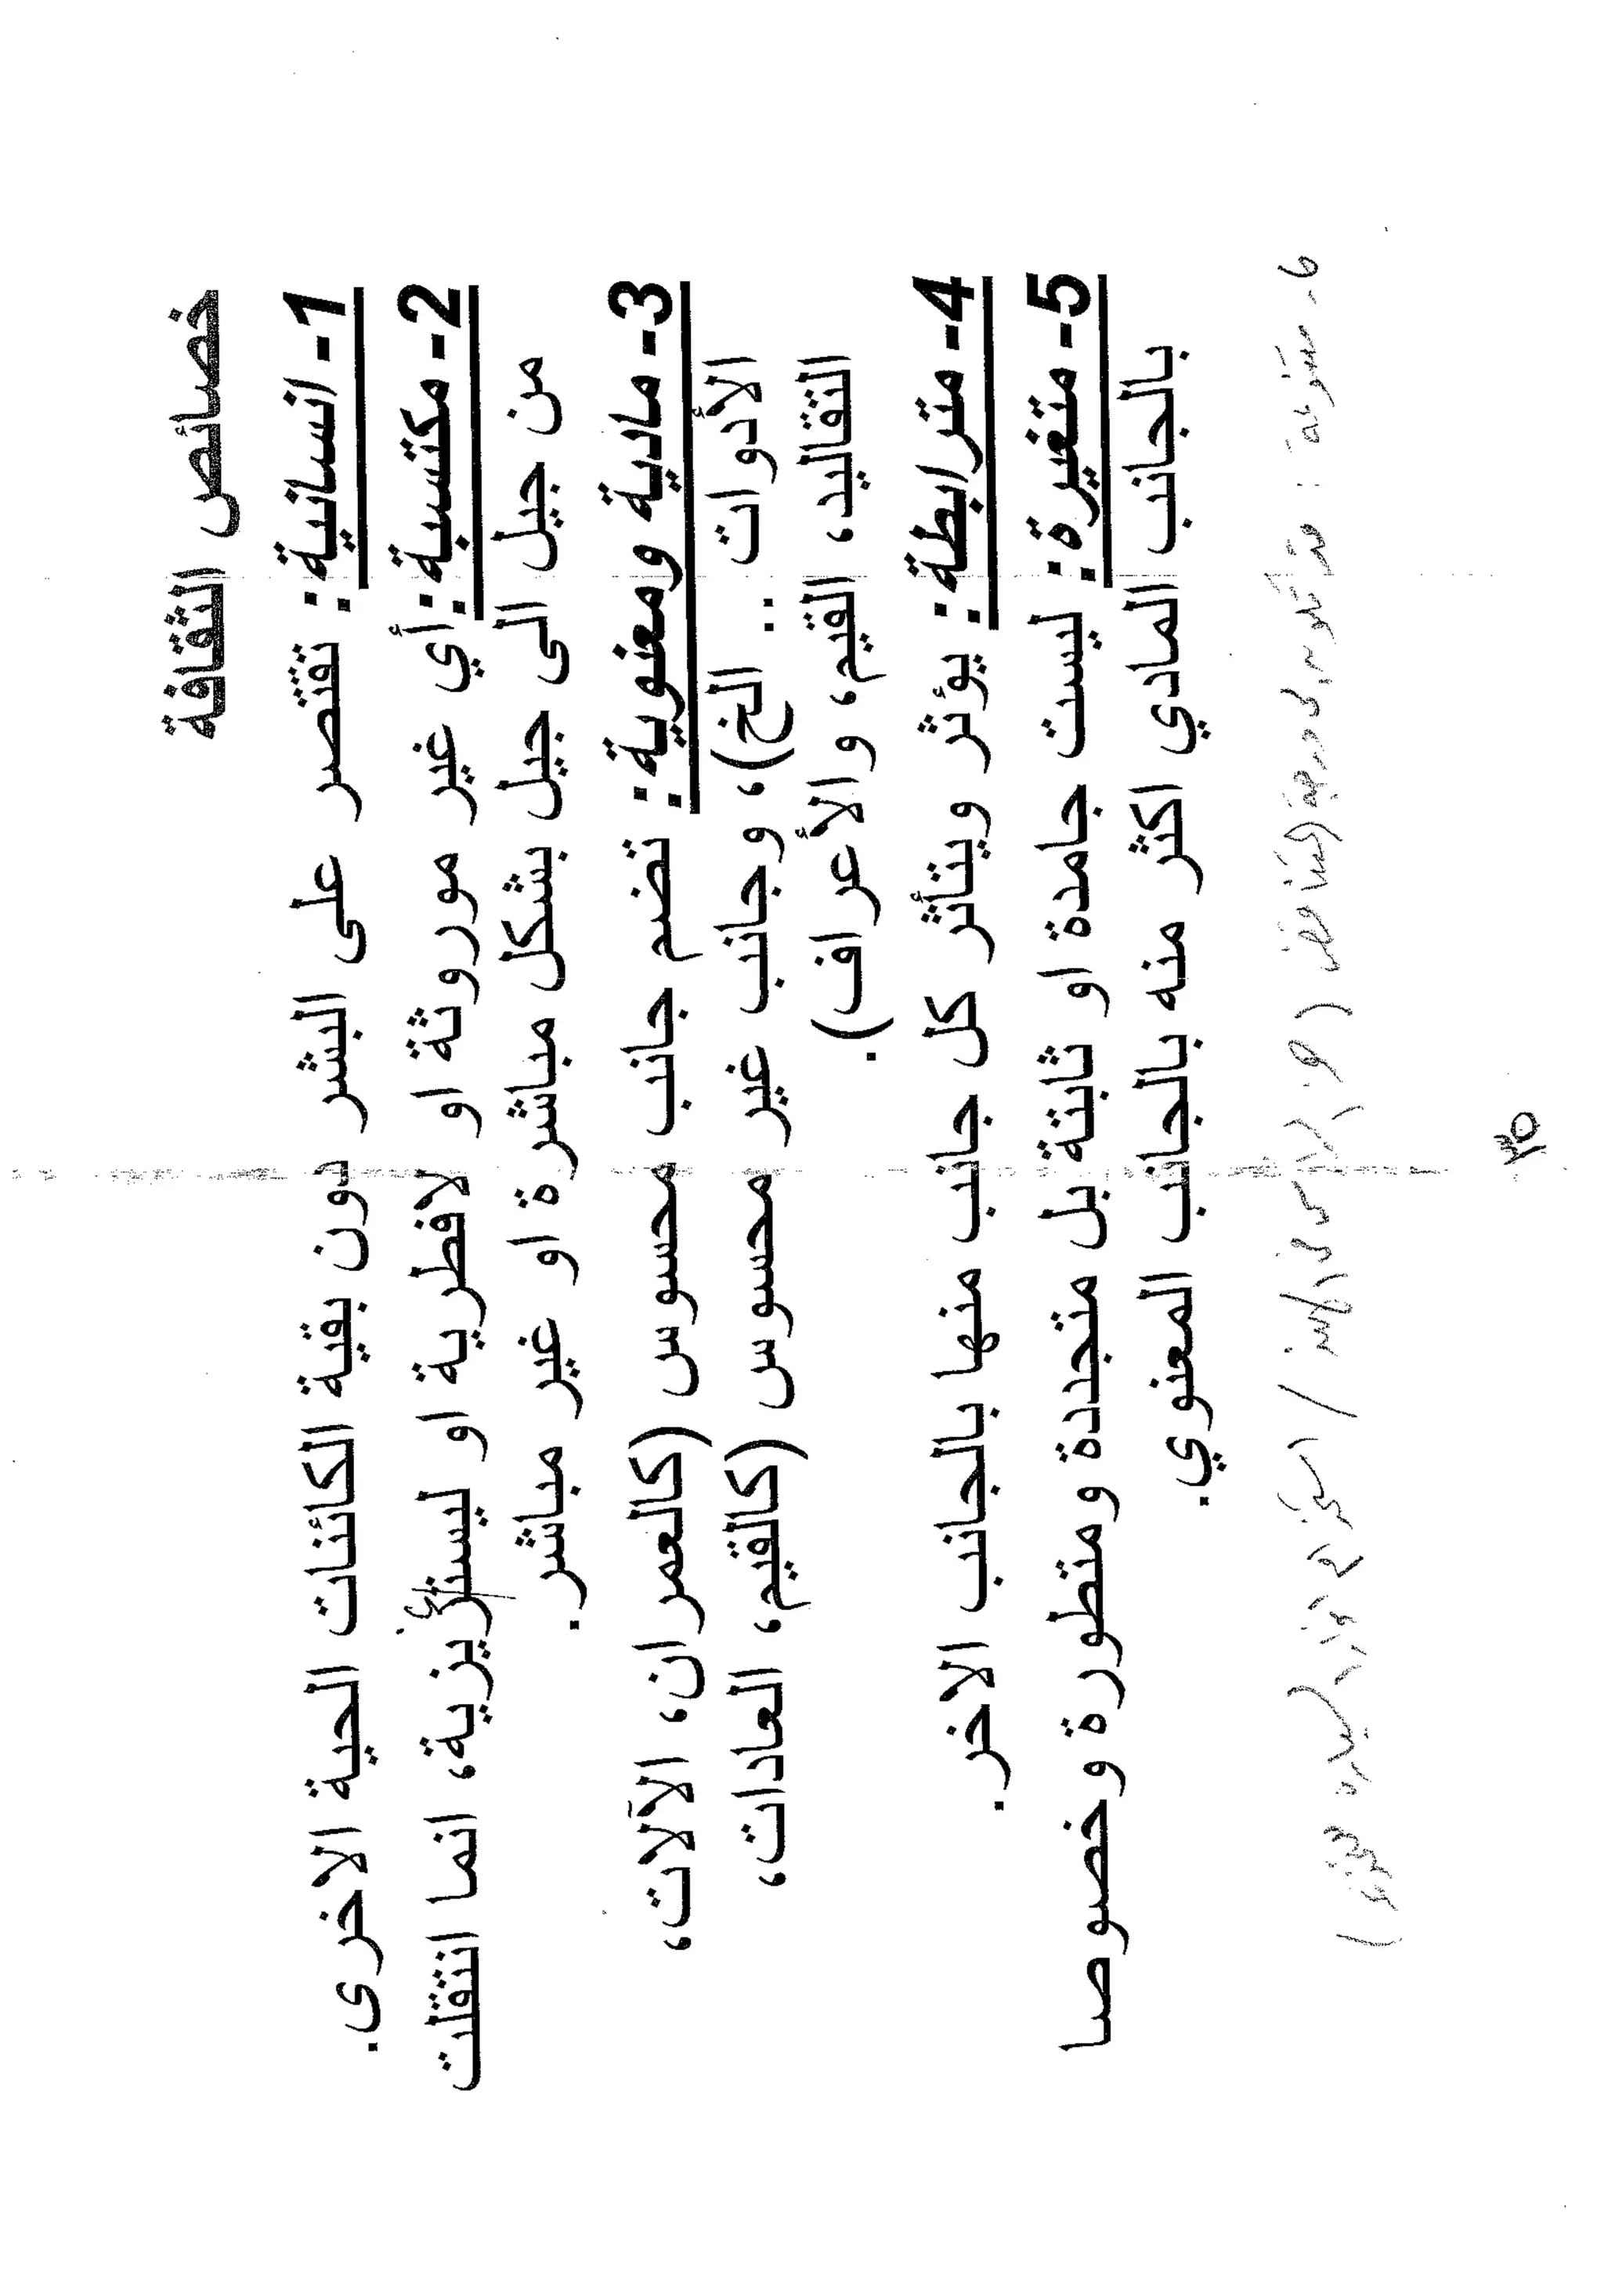 خصائص الثقافة
1- انسانية: تقتصر على البشر دون بقية الكائنات الحية الاخرى.
2- مكتسبة: أي غير موروثة او لافطرية او ليست غريزية، انما انتقلت
من جيل الى جيل بشكل مباشرة او غير مباشر.
3- مادية ومعنوية: تضم جانب محسوس (كالعمران، الآلات،
الأدوات .. الخ)، وجانب غير محسوس (كالقيم، العادات،
التقاليد، القيم، والأعراف).
4- مترابطة: يؤثر ويتأثر كل جانب منها بالجانب الاخر.
5- متغيرة: ليست جامدة او ثابتة بل متجددة ومتطورة وخصوصا
بالجانب المادي اكثر منه بالجانب المعنوي.
٦- متنوعة : قد تكون الى درجة التناقض ( / استخدام السيارة )
٣٥